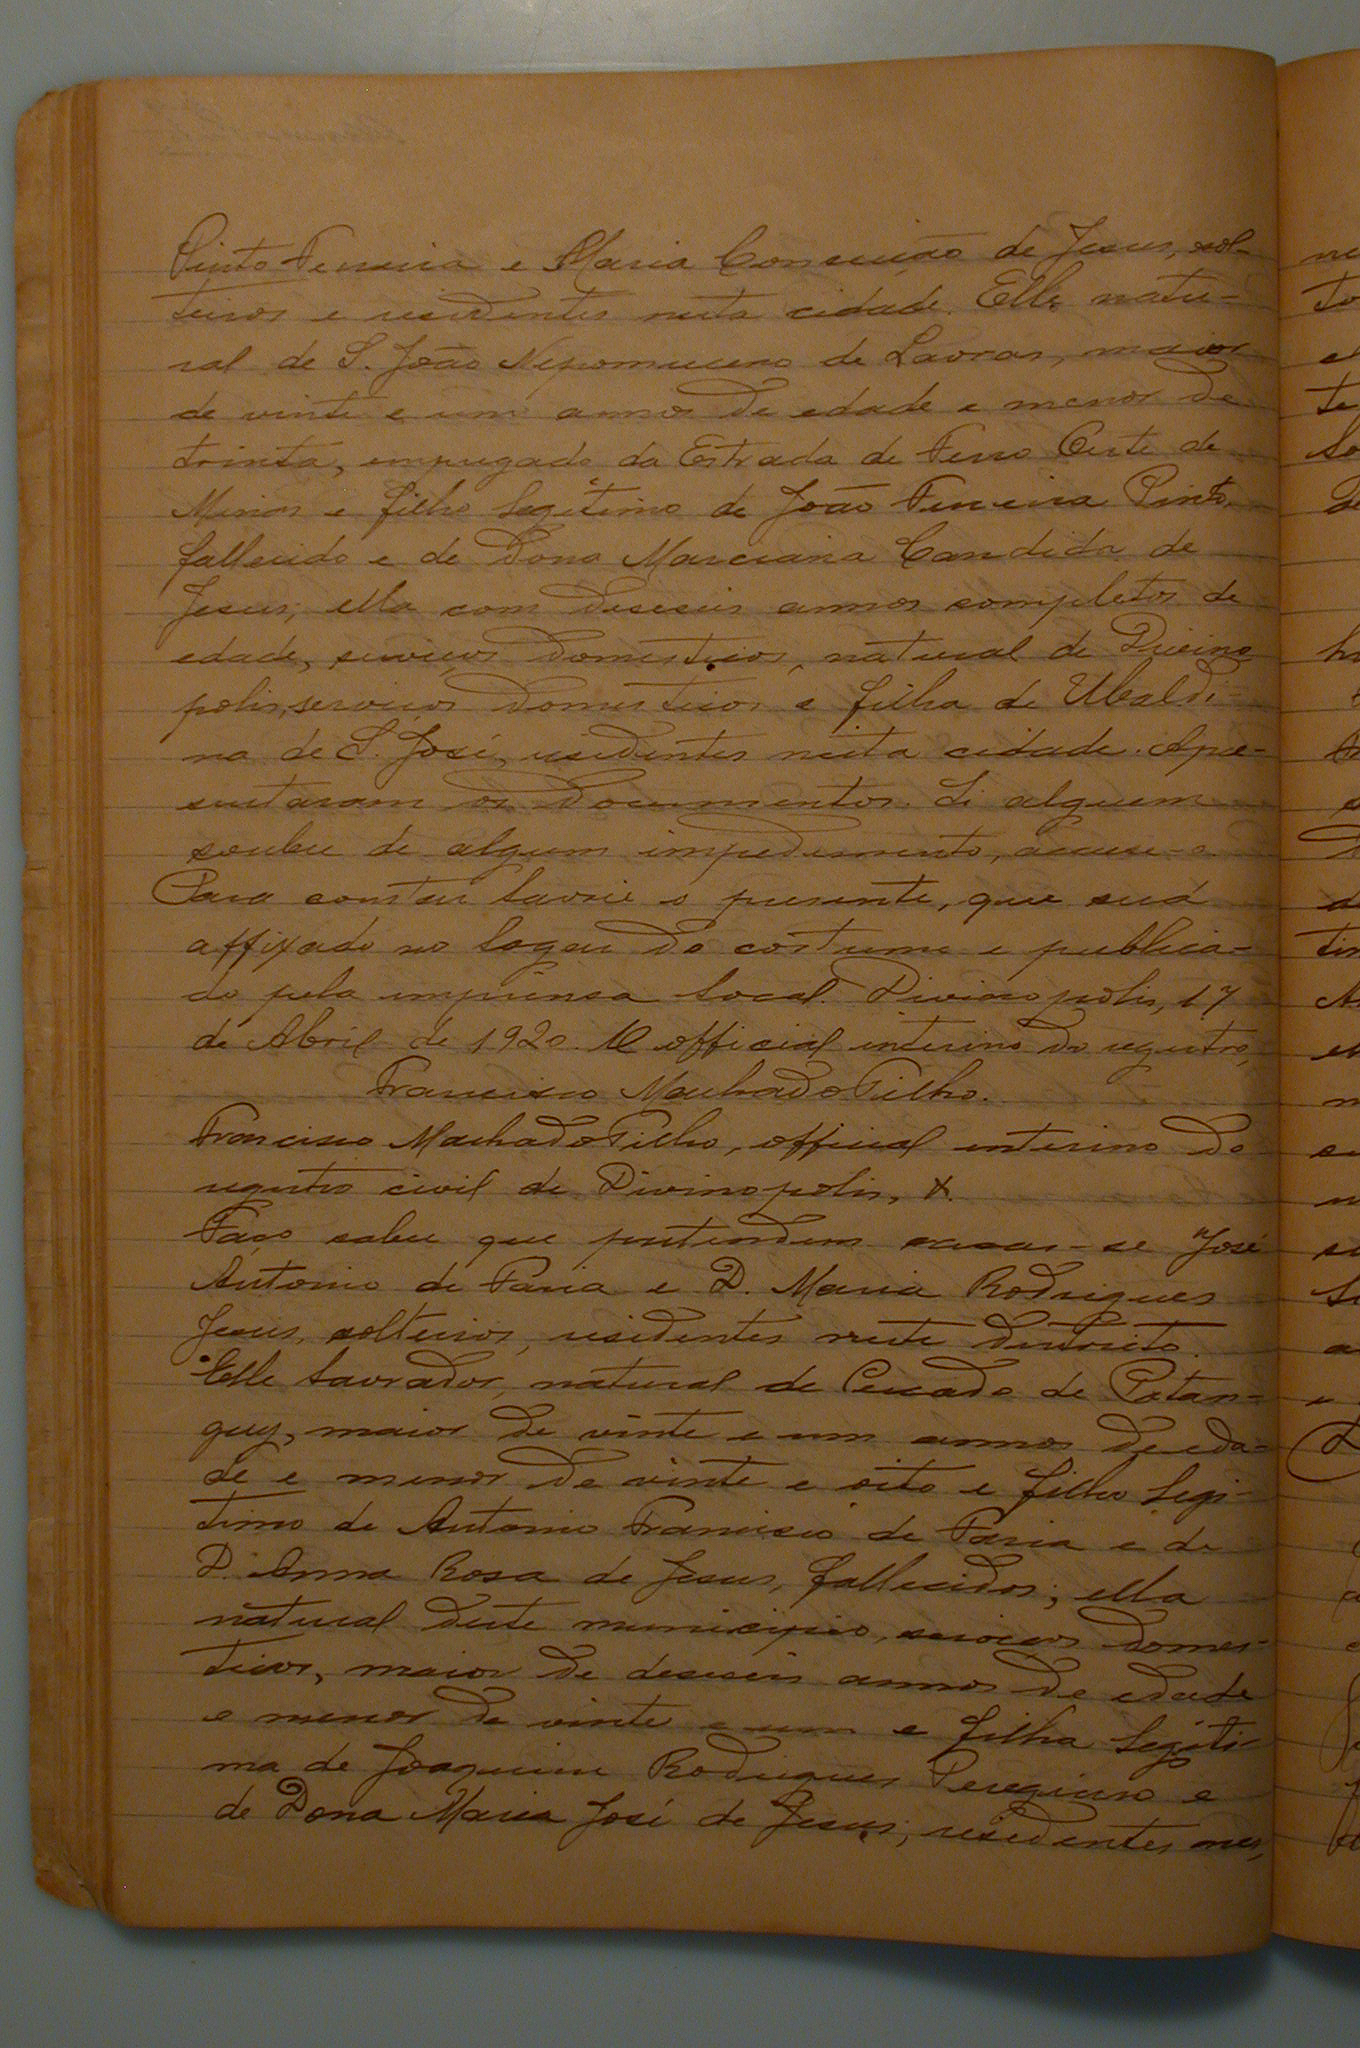 Pinto Ferreira e Maria Conceição de Jesus, sol-
teiros e residentes nesta cidade. Elle natu-
ral de S. João Nepomuceno de Lavras, maior
de vinte e um annos de edade e menor de
trinta, empregado da Estrada de Ferro Oeste de
Minas e filho legitimo de João Ferreira Pinto,
fallecido e de Dona Marciana Candida de
Jesus; ella com deseseis annos completos de
edade, serviços domesticos, natural de Divino
polis, serviços domesticos e filha de Ubaldi-
na de S. José, residentes nesta cidade. Apre-
sentaram os documentos. Si alguem
souber de algum impedimento, accuse-o
Para constar lavrei o presente, que será
affixado no logar do costume e publica-
do pela imprensa local. Divinopolis, 17
de Abril de 1920. O official interino do registro,
Francisco Machado Filho.
Francisco Machado Filho, official interino do
registro civil de Divinopolis, &.
Faço saber que pretendem casar-se José
Antonio de Faria e D. Maria Rodrigues
Jesus, solteiros, residentes neste districto.
Elle lavrador, natural de Cercado de Pitan-
guy, maior de vinte e um annos de eda-
de e menor de vinte e oito e filho legi-
timo de Antonio Francisco de Faria e de
D. Anna Rosa de Jesus, fallecidos; ella
natural deste municipio, serviços domes-
ticos, maior de deseseis annos de edade
e menor de vinte e um e filha legiti-
ma de Joaquim Rodrigues Peregrino e
de Dona Maria José de Jesus, residentes nes,